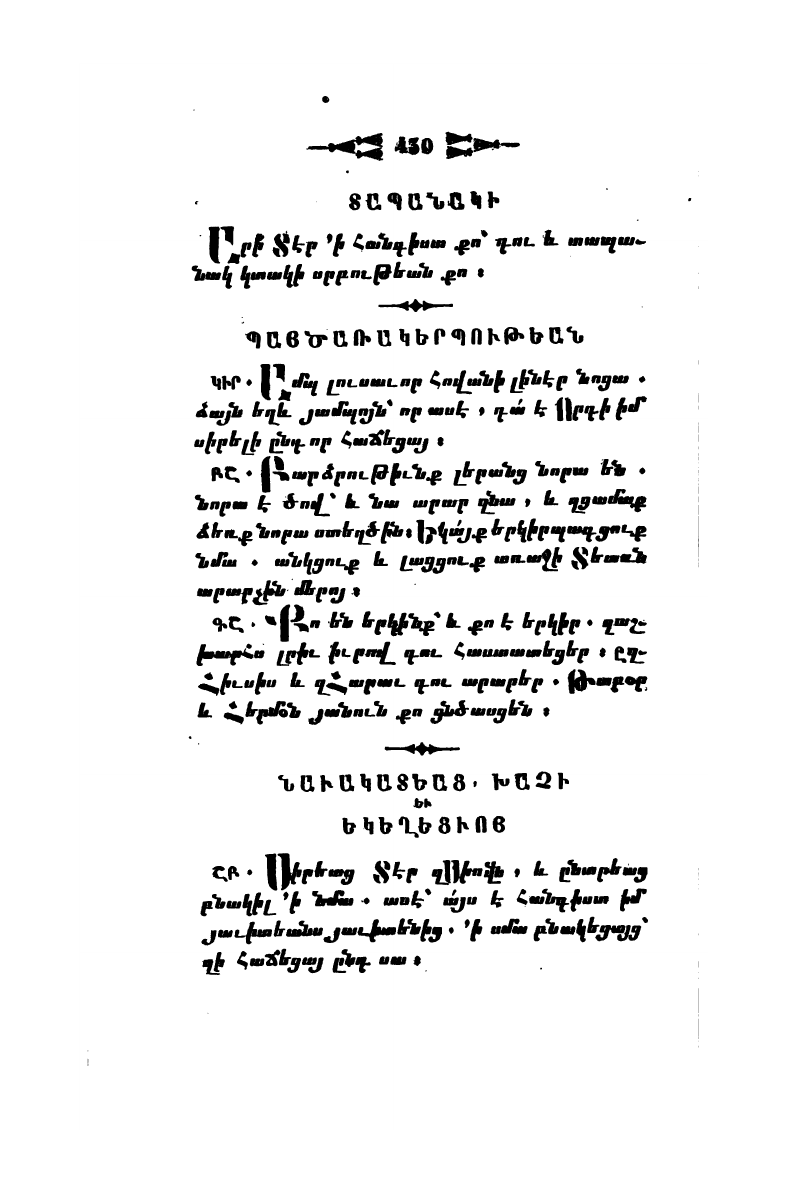 430
ՏԱՊԱՆԱԿԻ
Արի Տէր ՚ի Հանգիստ քո՝ դու և տապա֊
նակ կտակի սրբութեան քո ։
ՊԱՅԾԱՌԱԿԵՐՊՈՒԹԵԱՆ
ԿԻՐ · Ամպ լուսաւոր Հովանի լինէր նոցա ·
ձայն եղև յամպոյն՝ որ ասէ , դա՛ է Որդի իմ
սիրելի ընդ որ Հաճեցայ ։
ԲՇ · Բարձրութիւնք լերանց նորա են ·
նորա է ծով՝ և նա արար զնա , և զցամաք
ձեռք նորա ստեղծին։ Եկա՛յք երկիրպագցուք
նմա · անկցուք և լացցուք առաջի Տեառն
արարչին մերոյ ։
ԳՇ · Քո են երկինք՝ և քո է երկիր · զաշ֊
խարՀս լրիւ իւրով դու Հաստատեցեր ։ ըզ֊
Հիւսիս և զՀարաւ դու արարեր · Թաբօր
և Հերմօն յանուն քո ցնծասցեն ։
ՆԱՒԱԿԱՏԵԱՑ, ԽԱՉԻ
ԵՒ
ԵԿԵՂԵՑՒՈՅ
ՇԲ · Սիրեաց Տէր զՍիովն , և ընտրեաց
բնակիլ ՚ի նմա · ասէ՝ ա՛յս է Հանգիստ իմ
յաւիտեանս յաւիտենից · ՚ի սմա բնակեցայց՝
զի Հաճեցայ ընդ սա ։